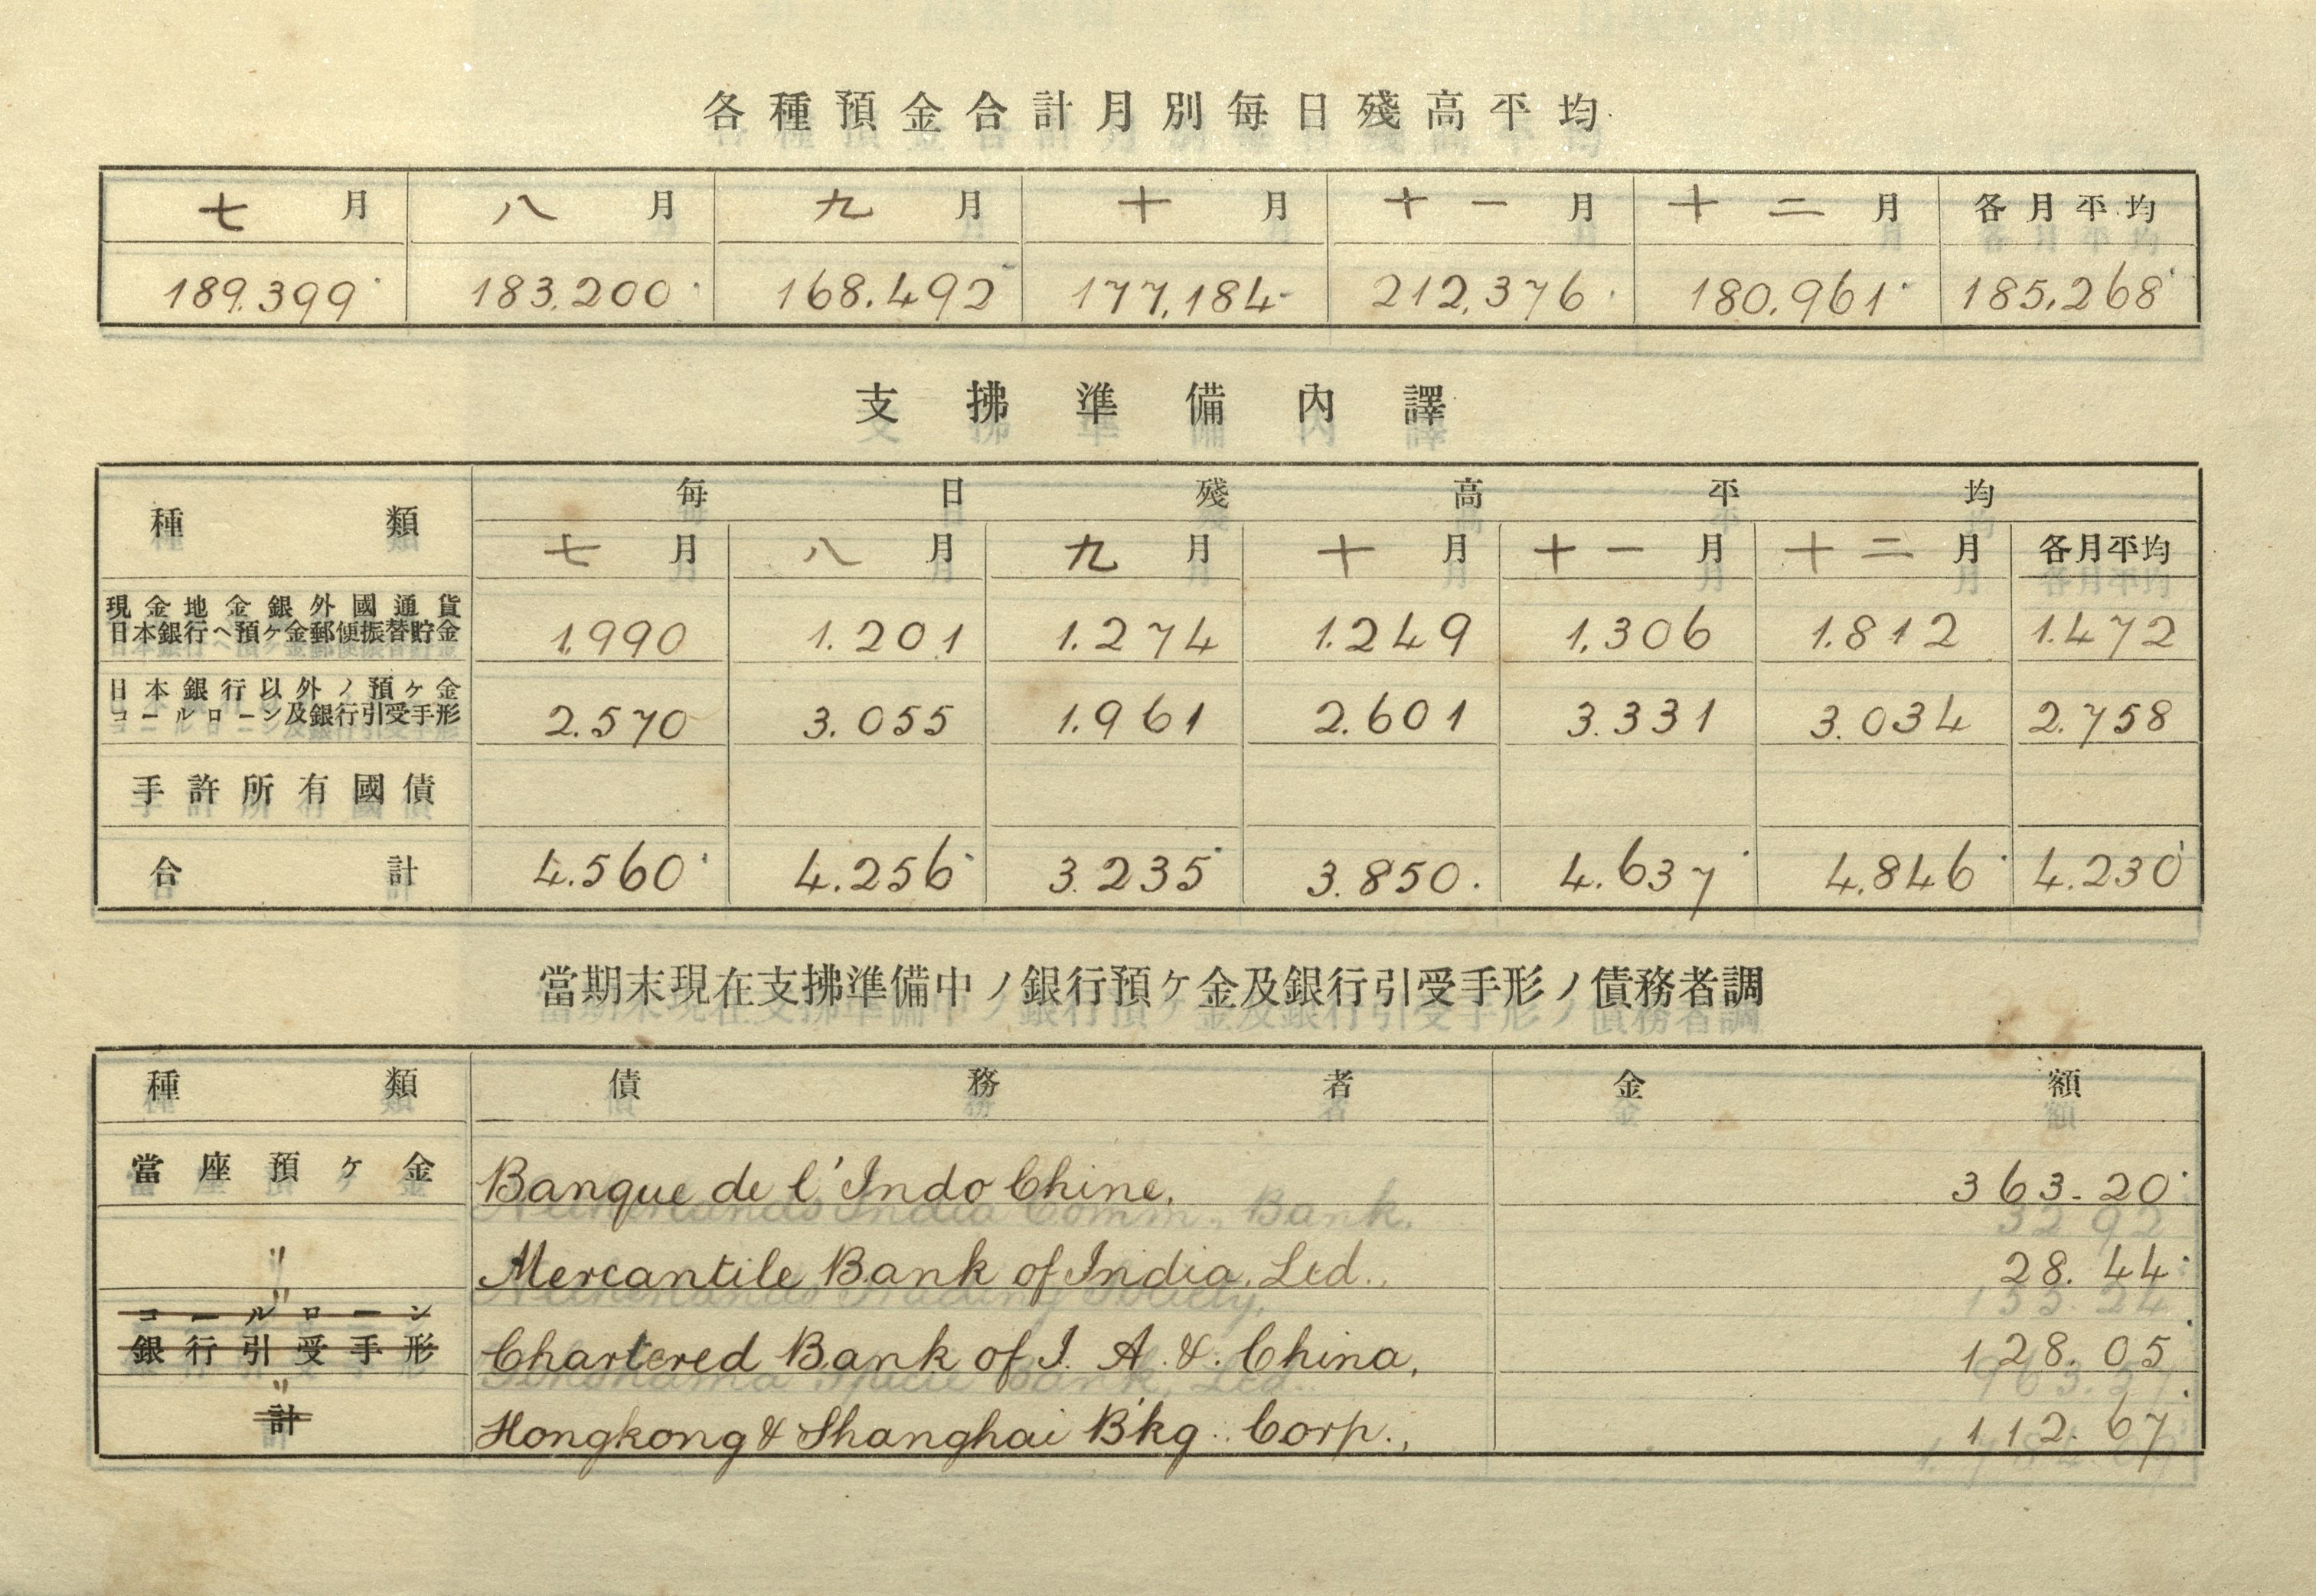 各種預金合計月別毎日殘高平均
七月 八月 九月 十月 十一月 十二月 各月平均
189.399 183.200 168.492 177.184 212.376 180.961 185.268
支拂準備內譯
種類 毎日殘高平均
七月 八月 九月 十月 十一月 十二月 各月平均
現金地金銀外國通貨
日本銀行ヘ預ヶ金郵便振替貯金 1.990 1.201 1.274 1.249 1.306 1.812 1.472
日本銀行以外ノ預ヶ金
コールローン及銀行引受手形 2.570 3.055 1.961 2.601 3.331 3.034 2.758
手許所有國債
合計 4.560 4.256 3.235 3.850. 4.637 4.846 4.230
當期末現在支拂準備中ノ銀行預ヶ金及銀行引受手形ノ債務者調
種類 債務者 金額
當座預ヶ金 Banque de l'Indo Chine, 363.20
〃 Mercantile Bank of India, Ltd., 28.44
コールローン 〃
銀行引受手形 Chartered Bank of I. A. & China, 128.05
〃
計 Hongkong & Shanghai B'kg. Corp., 112.67